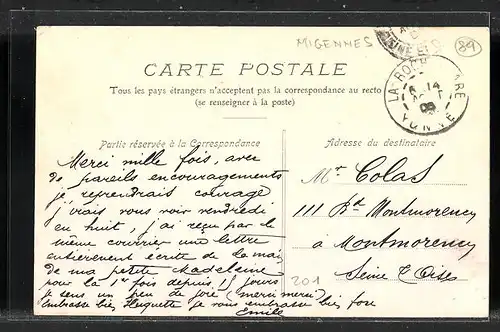 MIGENNES
89
CARTE POSTALE
Tous les pays étrangers n'acceptent pas la correspondance au recto
(se renseigner à la poste)
LA-ROCHE GARE
14
08
YONNE
Partie réservée à la Correspondance
Adresse du destinataire
Merci mille fois, avec
de pareils encouragements
je reprendrais courage
j'irais vous voir vendredi
en huit, j'ai reçu par le
même courrier une lettre
entièrement ecrite de la main
de ma petite Madeleine
pour la 1re fois depuis 15 jours
je sens un peu de joie (merci merci)
embrasse bien Huguette je vous embrasse bien fort
Emile
Mr Colas
111 Bd Montmorency
à Montmorency
Seine & Oise
201